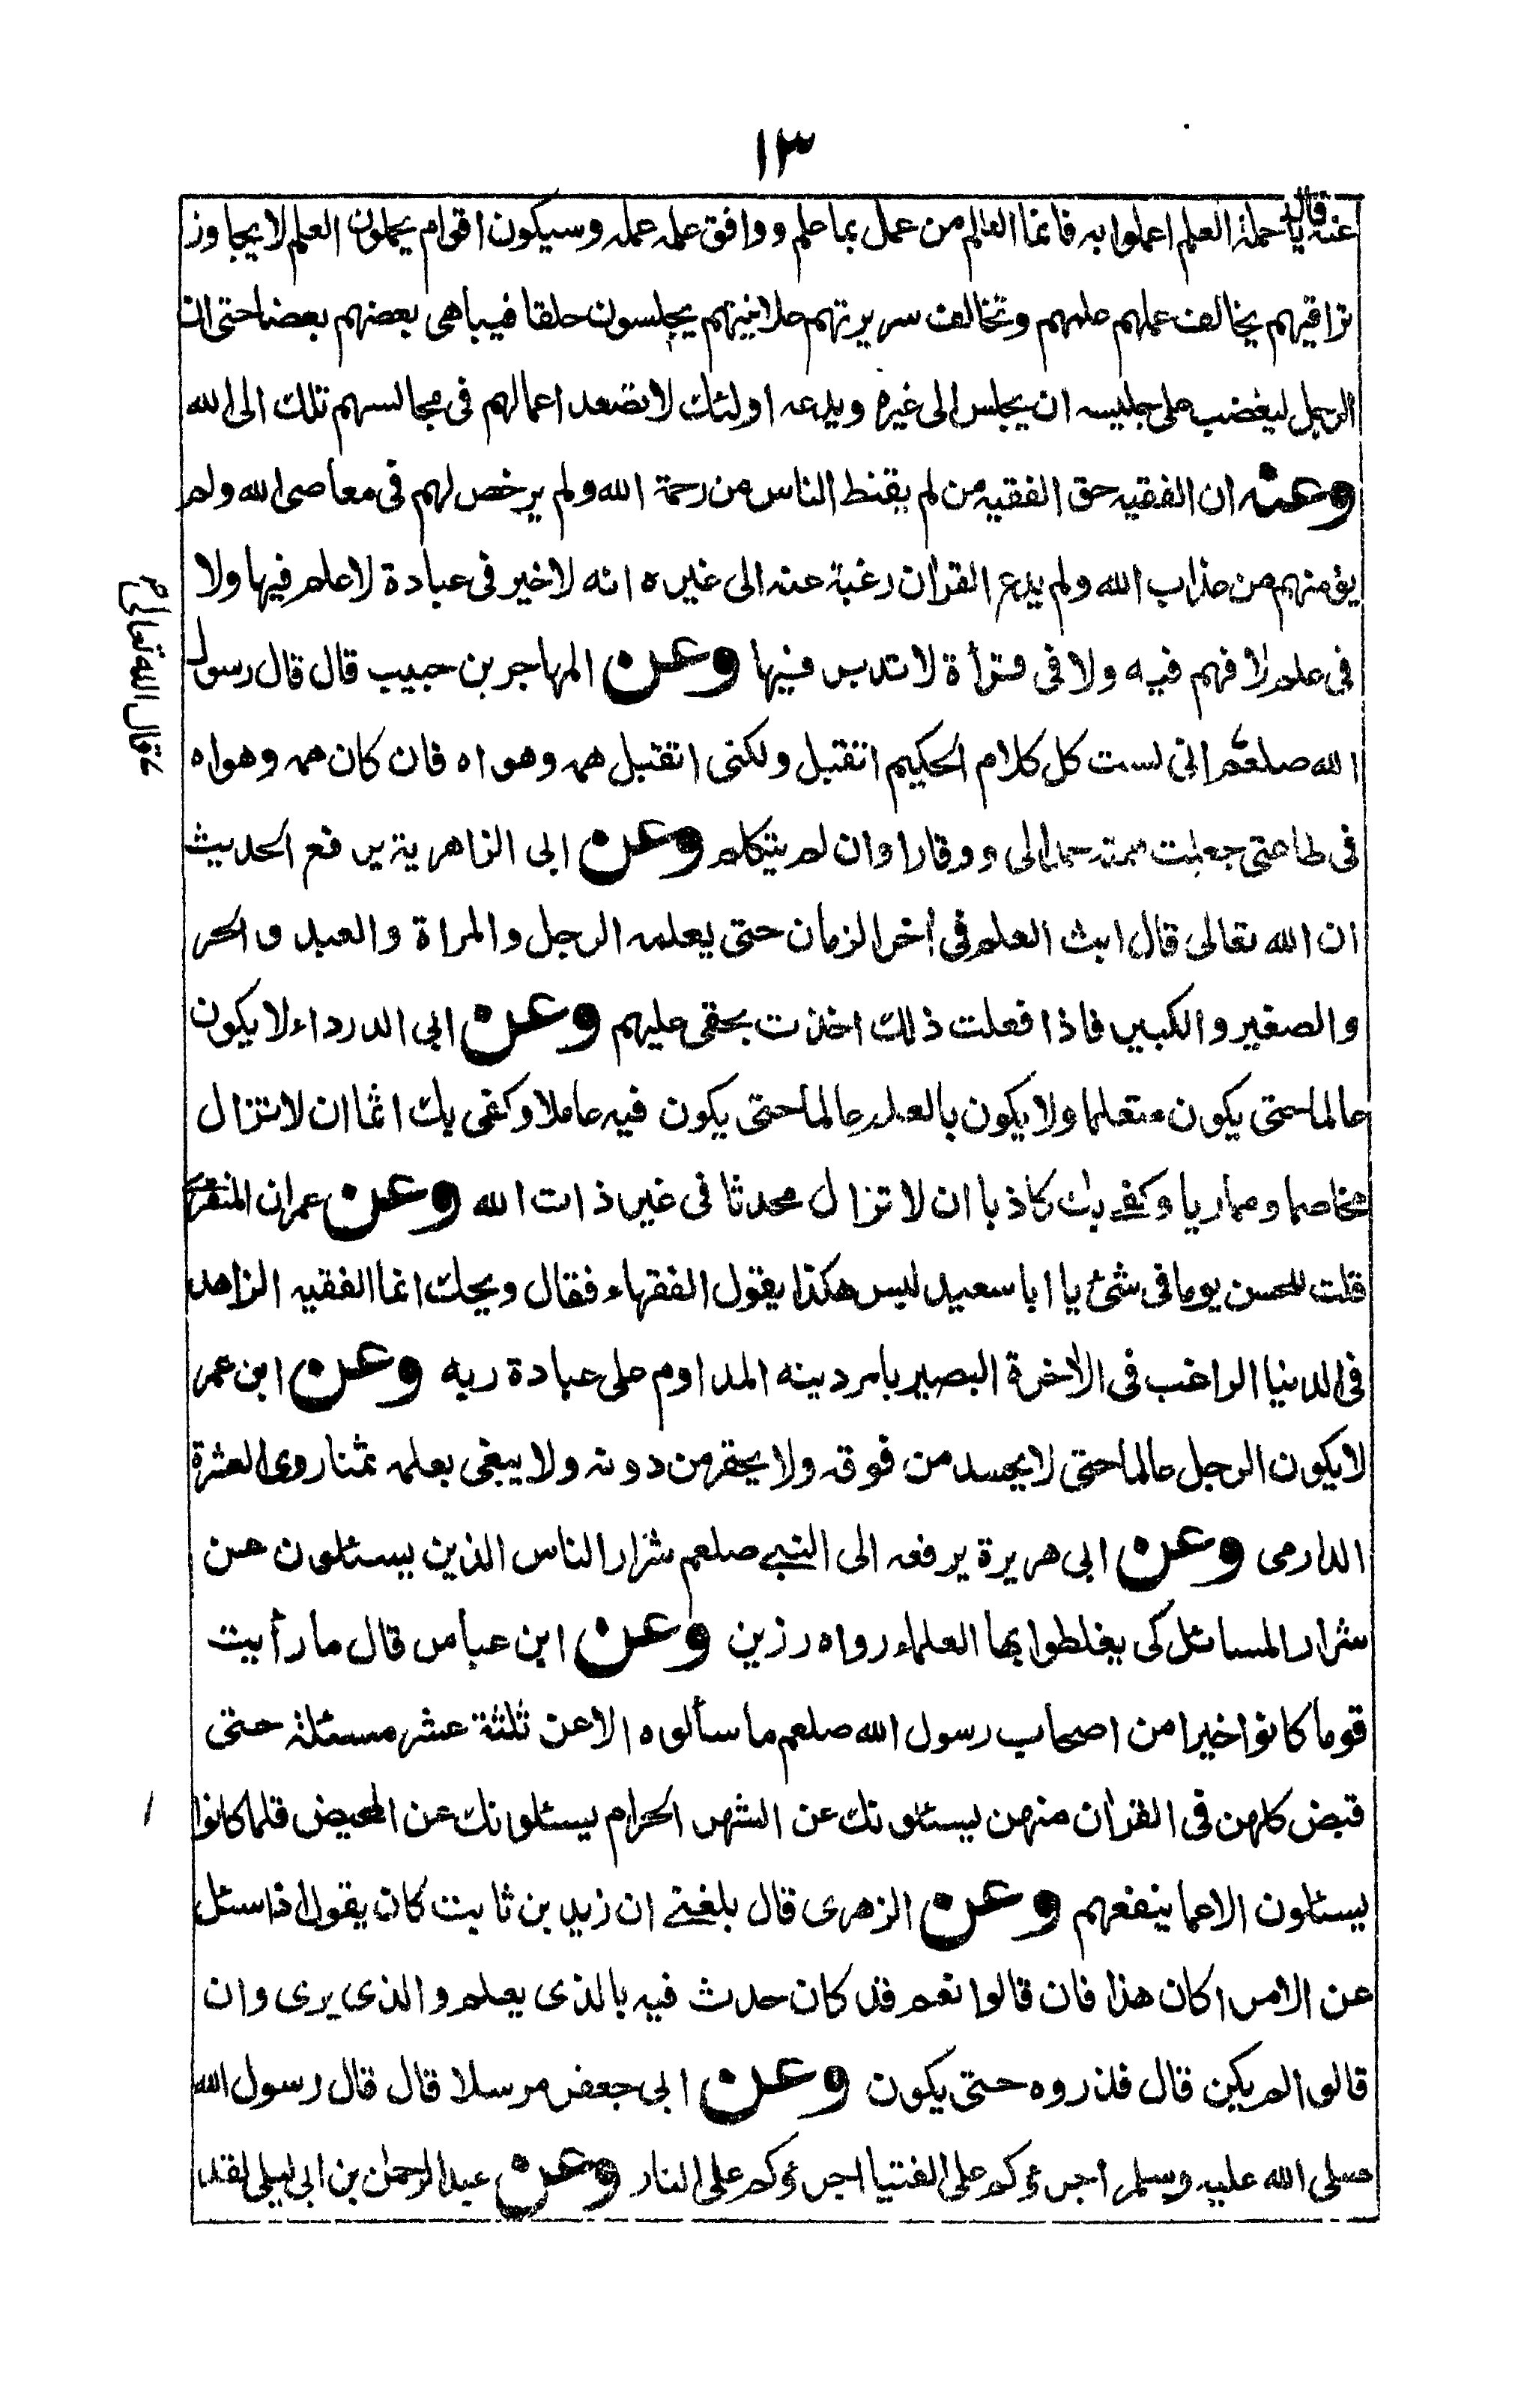 ١٣
عنه قال يا حملة العلم اعملوا به فانما العالم من عمل بما علم ووافق علمه عمله وسيكون اقوام يحملون العلم لا يجاوز
تراقيهم يخالف عملهم علمهم وتخالف سريرتهم علانيتهم يجلسون حلقا فيباهى بعضهم بعضا حتى ان
الرجل ليغضب على جليسه ان يجلس الى غيره ويدعه اولئك لا تصعد اعمالهم فى مجالسهم تلك الى الله
وعنه ان الفقيه حق الفقيه من لم يقنط الناس من رحمة الله ولم يرخص لهم فى معاصى الله ولم
يؤمنهم من عذاب الله ولم يدع القران رغبة عنه الى غيره انه لا خير فى عبادة لا علم فيها ولا
فى علم لا فهم فيه ولا فى قرأة لا تدبر فيها وعن المهاجر بن حبيب قال قال رسول
الله صلعم انى لست كل كلام الحكيم اتقبل ولكنى اتقبل همه وهواه فان كان همه وهواه
فى طاعتى جعلت صمته حمدا لى ووقارا وان لم يتكلم وعن ابى الزاهرية يرفع الحديث
ان الله تعالى قال ابث العلم فى أخر الزمان حتى يعلمه الرجل والمراة والعبد والحر
والصغير والكبير فاذا فعلت ذلك اخذت بحقى عليهم وعن ابى الدرداء لا يكون
عالما حتى يكون متعلما ولا يكون بالعلم عالما حتى يكون فيه عاملا وكفى بك اثما ان لا تزال
مخاصما ومماريا وكفى بك كاذبا ان لا تزال محدثا فى غير ذات الله وعن عمران المنقرى
قلت للحسن يوما فى شئ يا ابا سعيد ليس هكذا يقول الفقهاء فقال ويحك انما الفقيه الزاهد
فى الدنيا الراغب فى الاخرة البصير بامر دينه المداوم على عبادة ربه وعن ابن عمر
لا يكون الرجل عالما حتى لا يحسد من فوقه ولا يحقر من دونه ولا يبغى بعلمه ثمنا روى العشرة
الدارمى وعن ابى هريرة يرفعه الى النبى صلعم شرار الناس الذين يسئلون عن
شرار المسائل كى يغلطوا بها العلماء رواه رزين وعن ابن عباس قال ما رأيت
قوما كانوا خيرا من اصحاب رسول الله صلعم ما سألوه الا عن ثلثة عشر مسئلة حتى
قبض كلهن فى القران منهن يسئلونك عن الشهر الحرام يسئلونك عن المحيض قلما كانوا
يسئلون الا عما ينفعهم وعن الزهرى قال بلغنى ان زيد بن ثابت كان يقول اذا سئل
عن الامر اكان هذا فان قالوا نعم قد كان حدث فيه بالذى يعلم والذى يرى وان
قالوا لم يكن قال فذروه حتى يكون وعن ابى جعفر مرسلا قال قال رسول الله
صلى الله عليه وسلم اجرؤكم على الفتيا اجرؤكم على النار وعن عبد الرحمن بن ابى ليلى لقد
قال الله تعالى